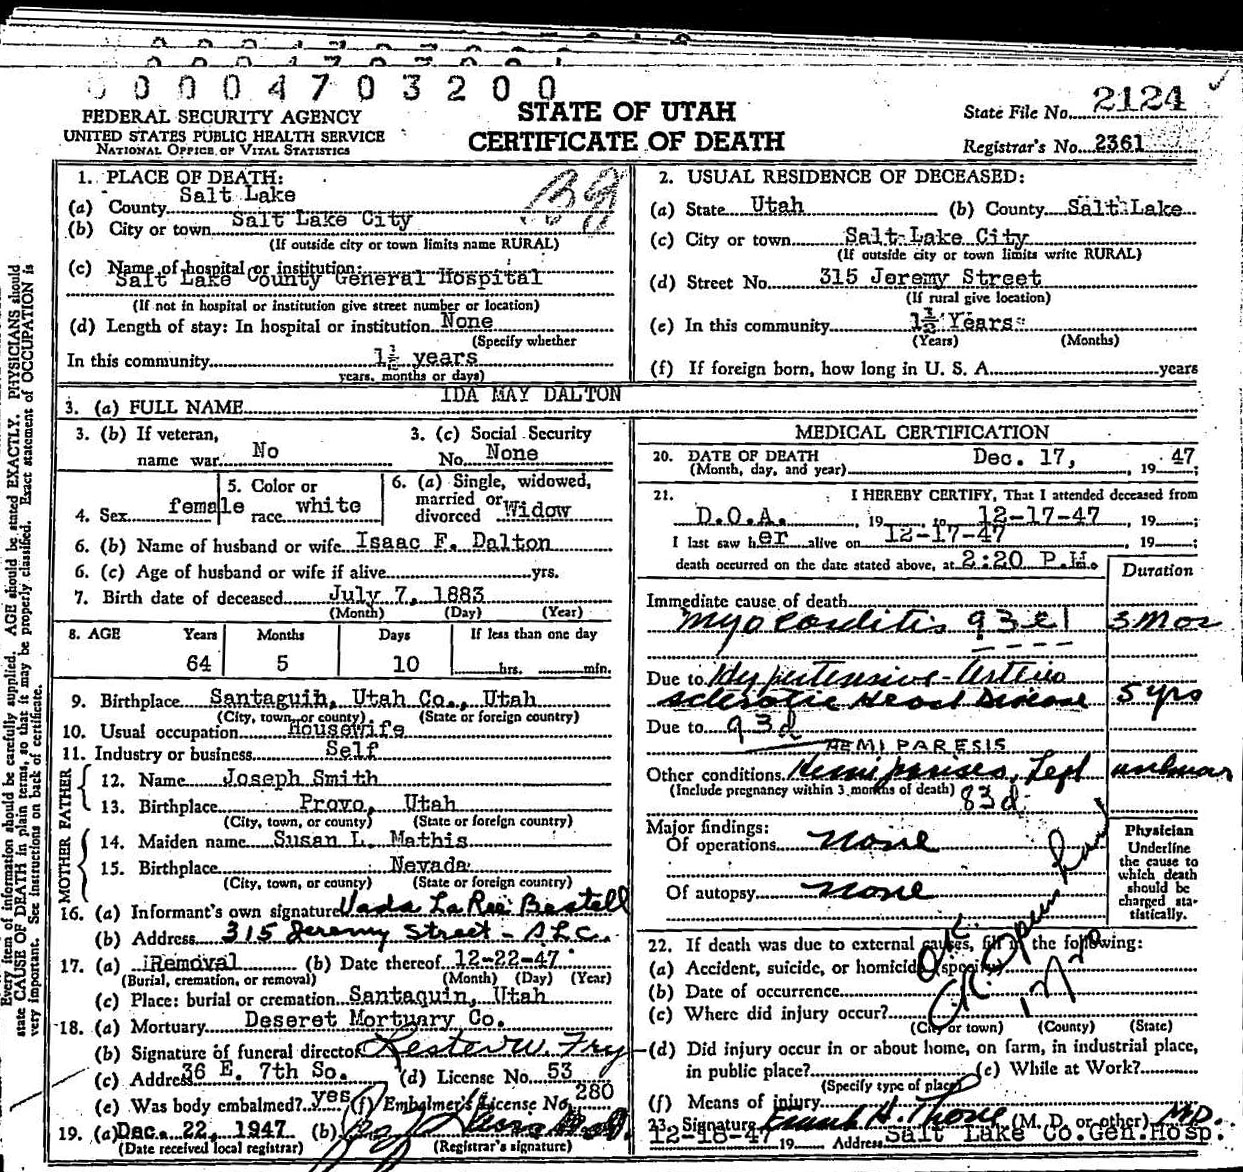 0 0 0 4 7 0 3 2 0 0
FEDERAL SECURITY AGENCY
UNITED STATES PUBLIC HEALTH SERVICE
NATIONAL OFFICE OF VITAL STATISTICS
STATE OF UTAH
CERTIFICATE OF DEATH
State File No. 2124
Registrar's No. 2361
Every item of information should be carefully supplied. AGE should be stated EXACTLY. PHYSICIANS should
state CAUSE OF DEATH in plain terms, so that it may be properly classified. Exact statement of OCCUPATION is
very important. See instructions on back of certificate.
1. PLACE OF DEATH:
(a) County Salt Lake
(b) City or town Salt Lake City
(If outside city or town limits name RURAL)
(c) Name of hospital or institution:
Salt Lake County General Hospital
(If not in hospital or institution give street number or location)
(d) Length of stay: In hospital or institution None
(Specify whether
In this community 1½ years
years, months or days)
2. USUAL RESIDENCE OF DECEASED:
(a) State Utah (b) County Salt Lake
(c) City or town Salt Lake City
(If outside city or town limits write RURAL)
(d) Street No. 315 Jeremy Street
(If rural give location)
(e) In this community 1½ Years
(Years) (Months)
(f) If foreign born, how long in U. S. A. years
3. (a) FULL NAME IDA MAY DALTON
3. (b) If veteran,
name war No
3. (c) Social Security
No. None
4. Sex female
5. Color or
race white
6. (a) Single, widowed,
married or
divorced Widow
6. (b) Name of husband or wife Isaac F. Dalton
6. (c) Age of husband or wife if alive yrs.
7. Birth date of deceased July 7, 1883
(Month) (Day) (Year)
8. AGE Years Months Days If less than one day
64 5 10 hrs. min.
9. Birthplace Santaquin, Utah Co., Utah
(City, town, or county) (State or foreign country)
10. Usual occupation Housewife
11. Industry or business Self
FATHER
12. Name Joseph Smith
13. Birthplace Provo, Utah
(City, town, or county) (State or foreign country)
MOTHER
14. Maiden name Susan L. Mathis
15. Birthplace Nevada
(City, town, or county) (State or foreign country)
16. (a) Informant's own signature Vada La Ree Bastell
(b) Address 315 Jeremy Street - SLC.
17. (a) Removal (b) Date thereof 12-22-47
(Burial, cremation, or removal) (Month) (Day) (Year)
(c) Place: burial or cremation Santaquin, Utah
18. (a) Mortuary Deseret Mortuary Co.
(b) Signature of funeral director Lester W. Fry
(c) Address 36 E. 7th So. (d) License No. 53
(e) Was body embalmed? yes (f) Embalmer's License No. 280
19. (a) Dec. 22, 1947 (b)
(Date received local registrar) (Registrar's signature)
MEDICAL CERTIFICATION
20. DATE OF DEATH Dec. 17, , 19 47;
(Month, day, and year)
21. I HEREBY CERTIFY, That I attended deceased from
D.O.A. , 19 to 12-17-47 , 19 ;
I last saw her alive on 12-17-47 , 19 ;
death occurred on the date stated above, at 2:20 P.M.
Duration
Immediate cause of death
Myocarditis 93e1 3 Mos
Due to Hypertensive-Arterio
sclerotic Heart Disease 5 yrs
Due to 93d
HEMI PARESIS
Other conditions Hemiparises, Left unknown
(Include pregnancy within 3 months of death) 83d
Major findings:
Of operations none
Of autopsy none
Physician
Underline
the cause to
which death
should be
charged sta-
tistically.
22. If death was due to external causes, fill in the following:
(a) Accident, suicide, or homicide (specify)
(b) Date of occurrence
(c) Where did injury occur?
(City or town) (County) (State)
(d) Did injury occur in or about home, on farm, in industrial place,
in public place? (e) While at Work?
(Specify type of place)
(f) Means of injury
23. Signature Frank H. Thone (M. D. or other) M.D.
12-18-47 19 Address Salt Lake Co.Gen.Hosp.